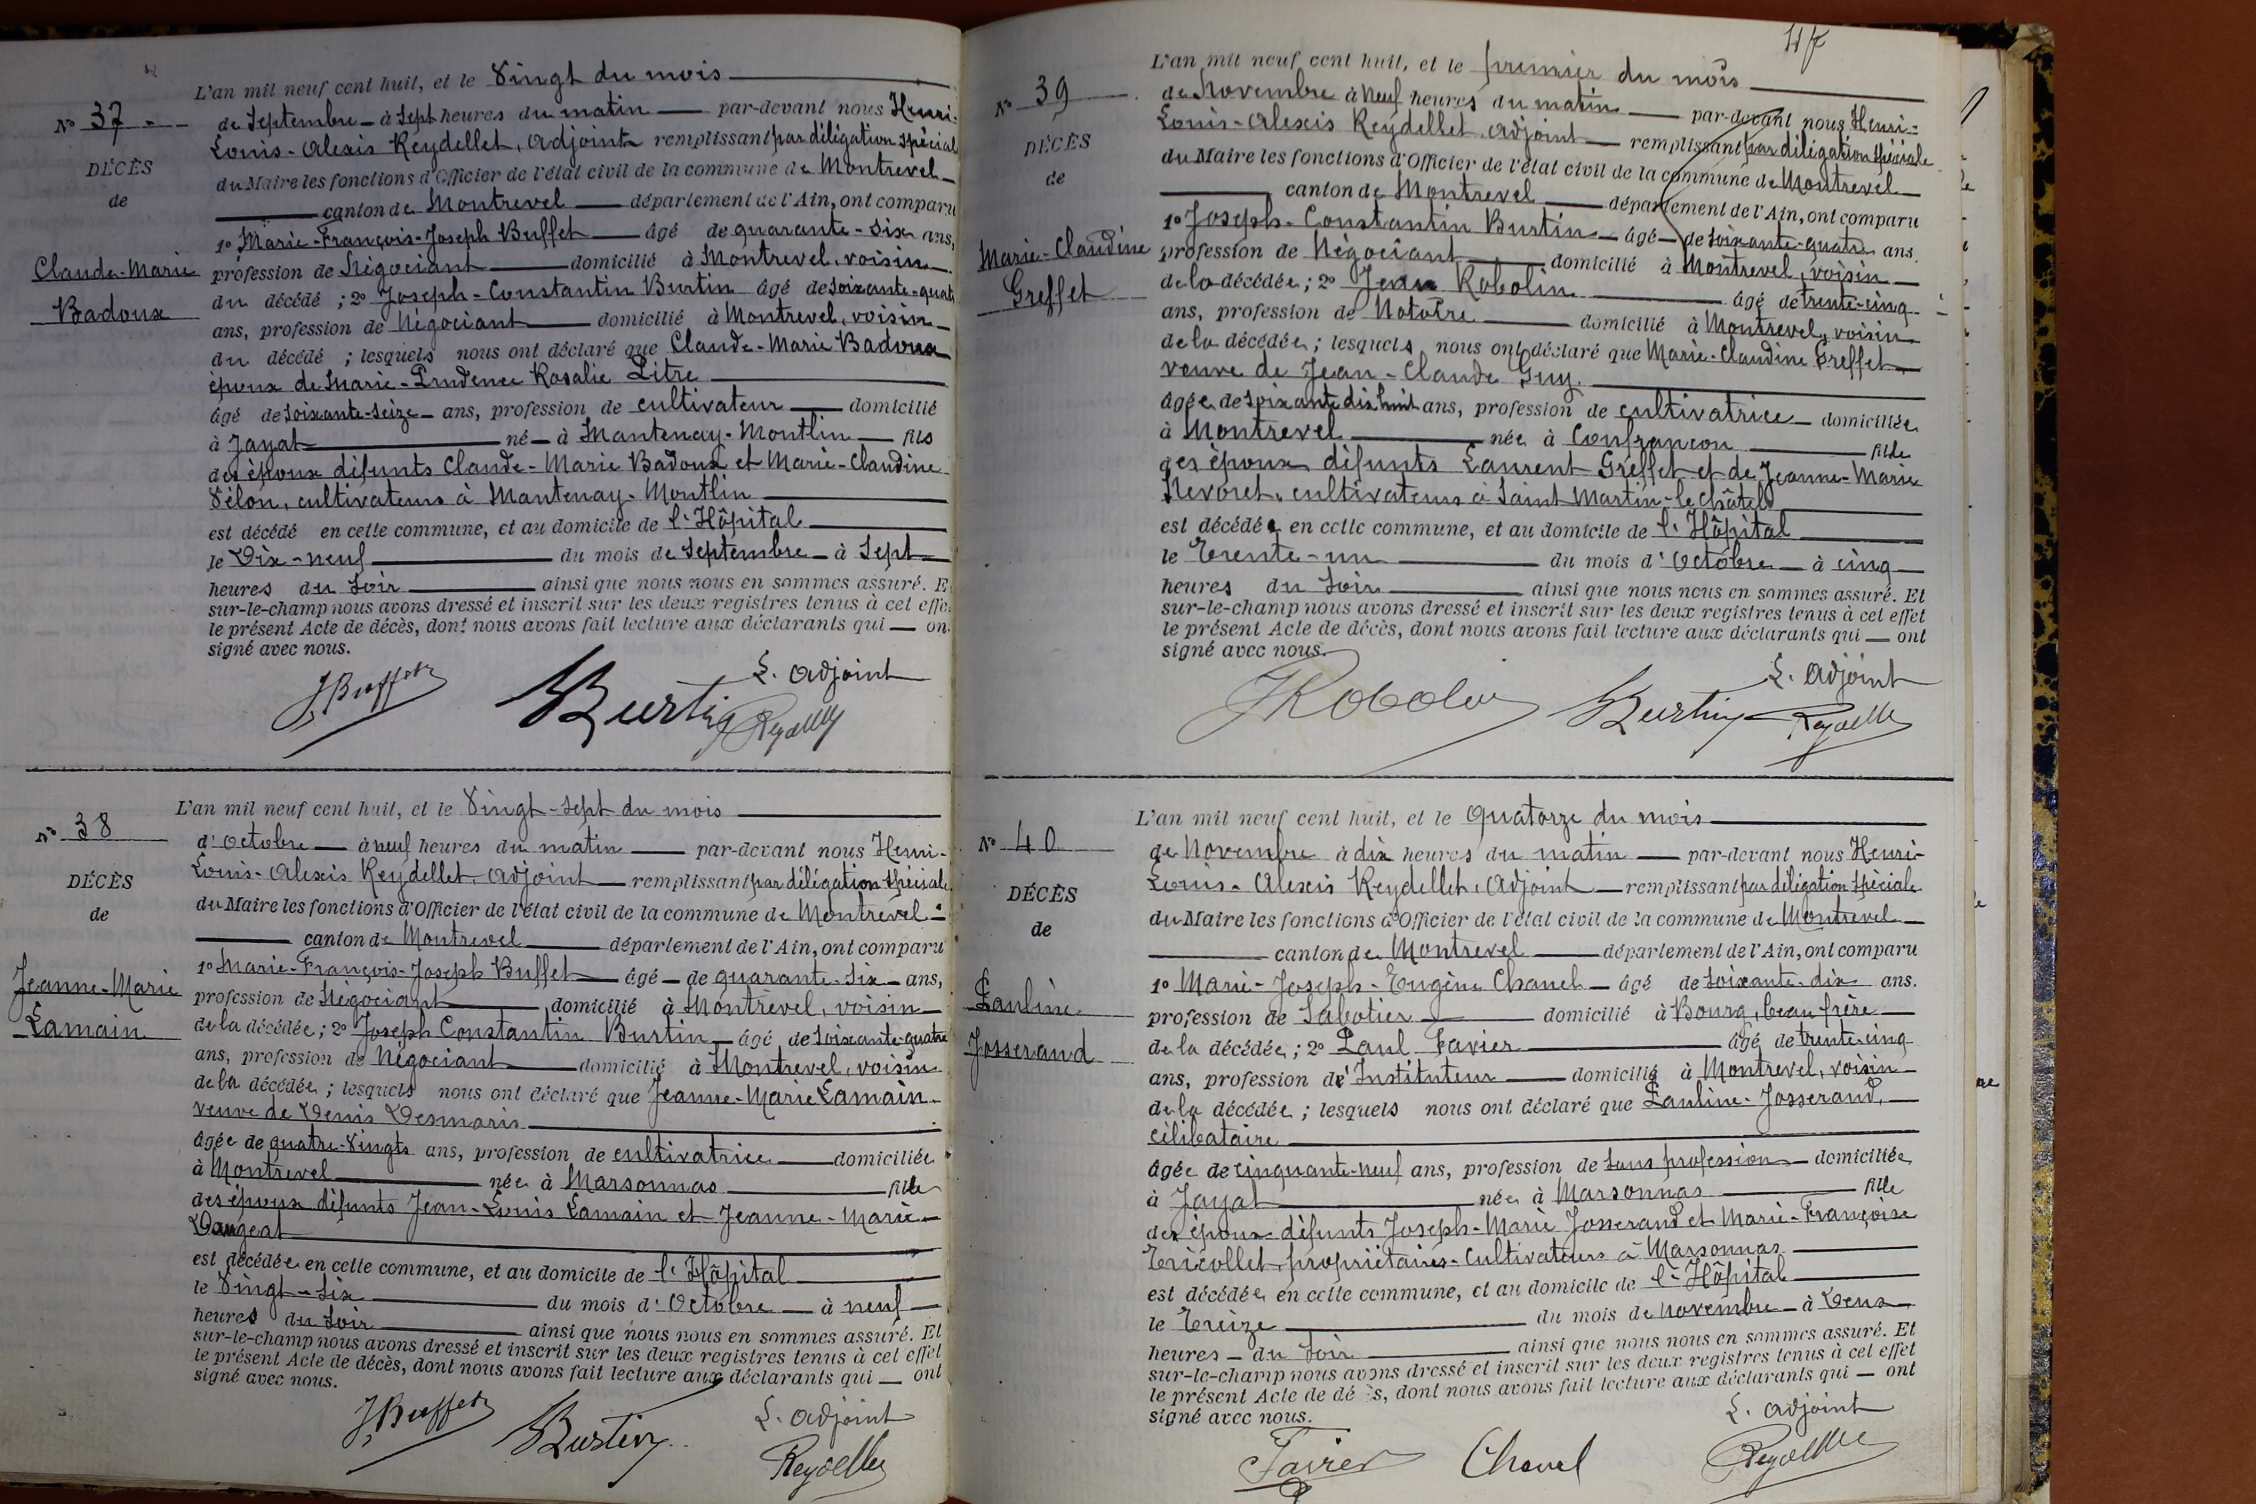 L'an mil neuf cent huit, et le Vingt du mois
Nº 37
de Septembre à Sept heures du matin par-devant nous Henri-
Louis-Alexis Reydellet, adjoint remplissant par délégation spéciale
DÉCÈS
de
du Maire les fonctions d'Officier de l'état civil de la commune de Montrevel
canton de Montrevel département de l'Ain, ont comparu
1º Marie-François-Joseph Buffet âgé de quarante-six ans,
Claude-Marie
Badoux
profession de Négociant domicilié à Montrevel, voisin
du décédé ; 2º Joseph-Constantin Burtin âgé de soixante-quatre
ans, profession de Négociant domicilié à Montrevel, voisin
du décédé ; lesquels nous ont déclaré que Claude-Marie Badoux
époux de Marie-Prudence Rosalie Litre
âgé de soixante-seize ans, profession de cultivateur domicilié
à Jayat né à Mantenay-Montlin fils
des époux défunts Claude-Marie Badoux et Marie-Claudine
Vélon, cultivateurs à Mantenay-Montlin
est décédé en cette commune, et au domicile de l'Hôpital
le Dix-neuf du mois de Septembre à Sept
heures du Soir ainsi que nous nous en sommes assuré. E
sur-le-champ nous avons dressé et inscrit sur les deux registres tenus à cet effe
le présent Acte de décès, dont nous avons fait lecture aux déclarants qui on
signé avec nous.
L. adjoint
J Buffet Burtin Reydellet
L'an mil neuf cent huit, et le Vingt-sept du mois
Nº 38
d'Octobre à neuf heures du matin par-devant nous Henri-
Louis-Alexis Reydellet, adjoint remplissant par délégation spéciale
DÉCÈS
de
du Maire les fonctions d'Officier de l'état civil de la commune de Montrevel
canton de Montrevel département de l'Ain, ont comparu
1º Marie-François-Joseph Buffet âgé de quarante-six ans,
Jeanne-Marie
Lamain
profession de Négociant domicilié à Montrevel, voisin
de la décédée ; 2º Joseph Constantin Burtin âgé de soixante-quatre
ans, profession de Négociant domicilié à Montrevel, voisin
de la décédée ; lesquels nous ont déclaré que Jeanne-Marie Lamain
veuve de Denis Desmaris
âgée de quatre-vingts ans, profession de cultivatrice domiciliée
à Montrevel née à Marsonnas fille
des époux défunts Jean-Louis Lamain et Jeanne-Marie
Dangeat
est décédée en cette commune, et au domicile de l'Hôpital
le Vingt-six du mois d'Octobre à neuf
heures du Soir ainsi que nous nous en sommes assuré. Et
sur-le-champ nous avons dressé et inscrit sur les deux registres tenus à cet effet
le présent Acte de décès, dont nous avons fait lecture aux déclarants qui ont
signé avec nous.
J Buffet Burtin L. adjoint
Reydellet
47
L'an mil neuf cent huit, et le premier du mois
Nº 39
de Novembre à neuf heures du matin par-devant nous Henri-
Louis-Alexis Reydellet, adjoint remplissant par délégation spéciale
DÉCÈS
de
du Maire les fonctions d'Officier de l'état civil de la commune de Montrevel
canton de Montrevel département de l'Ain, ont comparu
1º Joseph-Constantin Burtin âgé de soixante-quatre ans.
Marie-Claudine
Greffet
profession de Négociant domicilié à Montrevel, voisin
de la décédée ; 2º Jean Robolin âgé de trente-cinq
ans, profession de Notaire domicilié à Montrevel, voisin
de la décédée ; lesquels nous ont déclaré que Marie-Claudine Greffet
veuve de Jean-Claude Guy.
âgée de soixante dix huit ans, profession de cultivatrice domiciliée
à Montrevel née à Confrançon fille
des époux défunts Laurent Greffet et de Jeanne-Marie
Nevoret, cultivateurs à Saint Martin-le-Châtel
est décédée en cette commune, et au domicile de l'Hôpital
le Trente-un du mois d'Octobre à cinq
heures du Soir ainsi que nous nous en sommes assuré. Et
sur-le-champ nous avons dressé et inscrit sur les deux registres tenus à cet effet
le présent Acte de décès, dont nous avons fait lecture aux déclarants qui ont
signé avec nous.
L. adjoint
J Robolin Burtin Reydellet
L'an mil neuf cent huit, et le Quatorze du mois
Nº 40
de Novembre à dix heures du matin par-devant nous Henri-
Louis-Alexis Reydellet, adjoint remplissant par délégation spéciale
DÉCÈS
de
du Maire les fonctions d'Officier de l'état civil de la commune de Montrevel
canton de Montrevel département de l'Ain, ont comparu
1º Marie-Joseph-Eugène Chanel âgé de soixante-dix ans.
Pauline
Josserand
profession de Sabotier domicilié à Bourg, beau frère
de la décédée ; 2º Paul Favier âgé de trente-cinq
ans, profession d'Instituteur domicilié à Montrevel, voisin
de la décédée ; lesquels nous ont déclaré que Pauline-Josserand,
célibataire
âgée de cinquante-neuf ans, profession de sans profession domiciliée
à Jayat née à Marsonnas fille
des époux défunts Joseph-Marie Josserand et Marie-Françoise
Tricollet, propriétaires-cultivateurs à Marsonnas
est décédée en cette commune, et au domicile de l'Hôpital
le Treize du mois de novembre à Deux
heures du Soir ainsi que nous nous en sommes assuré. Et
sur-le-champ nous avons dressé et inscrit sur les deux registres tenus à cet effet
le présent Acte de dé s, dont nous avons fait lecture aux déclarants qui ont
signé avec nous.
L. adjoint
Favier Chanel Reydellet